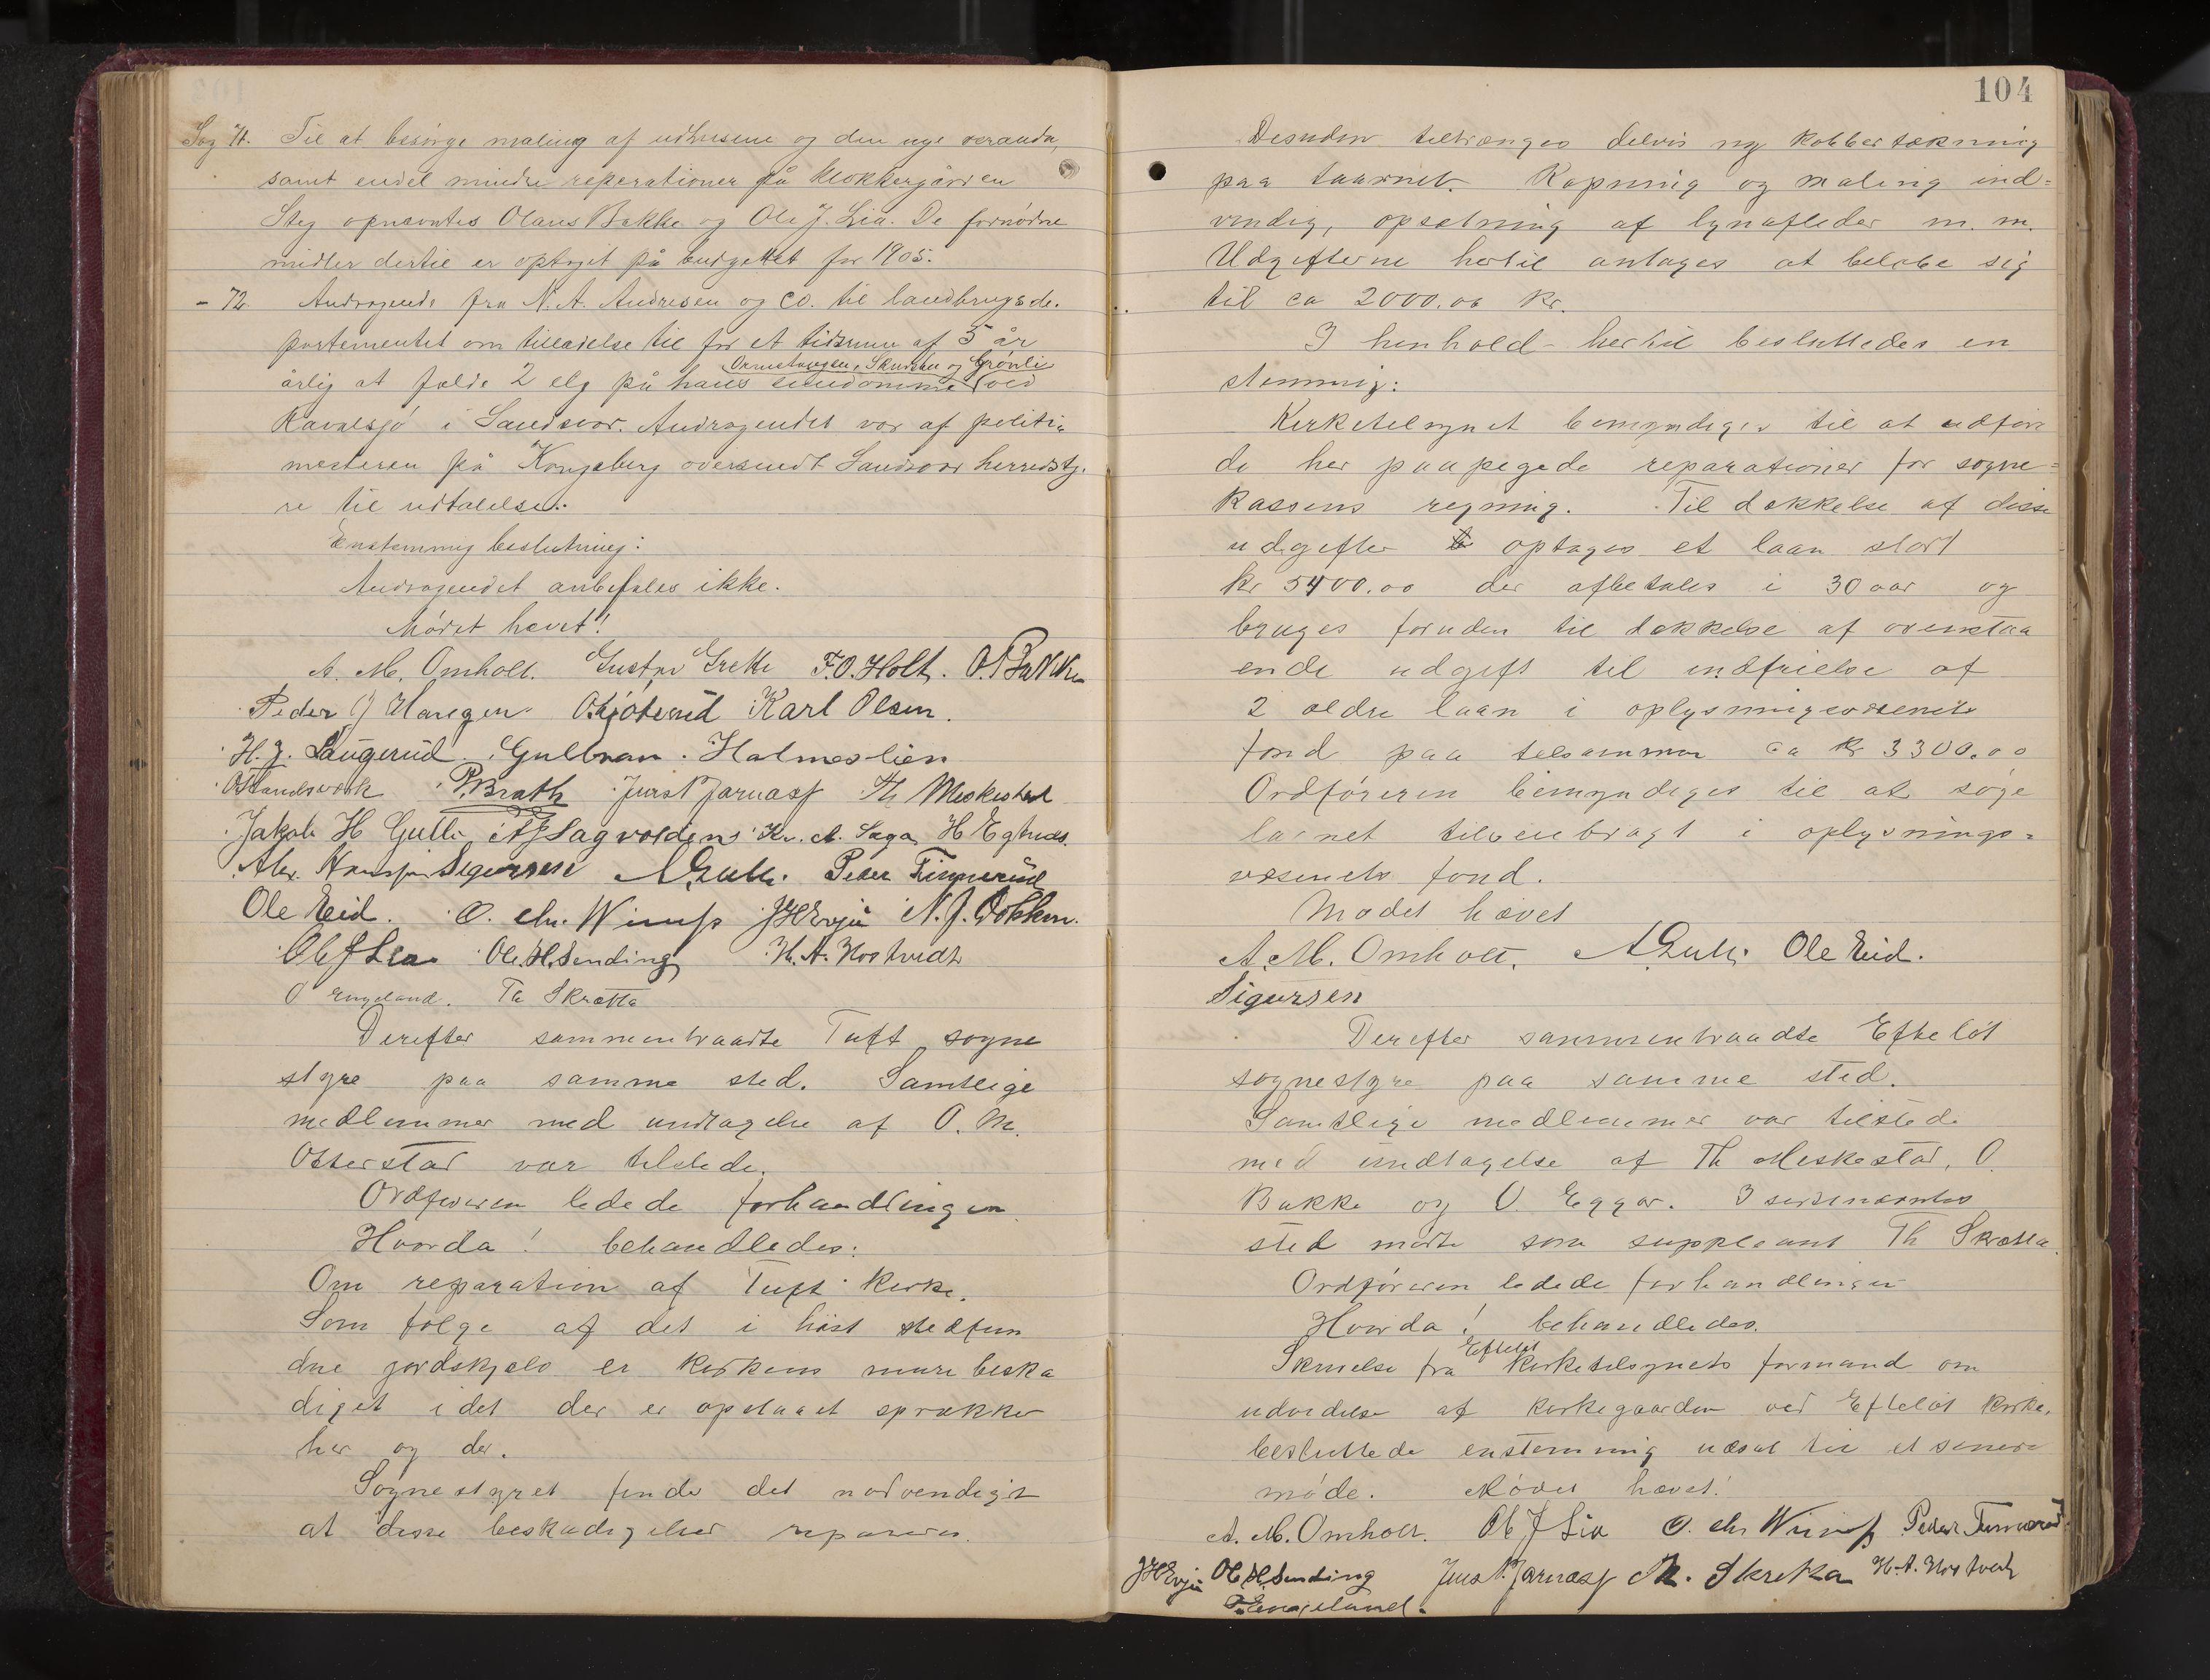 Sag 71. Til at besørge maling af udhusene og den nye veranda,
samt endel mindre reperationer på klokkergården
Steg opnævntes Olaus Bakke og Ole J. Lia. De fornødne
midler dertil er optaget på budgettet for 1905.
- 72. Andragende fra N. A. Andresen og Co. til landbrugsde-
partementet om tilladelse til for et tidsrum af 5 år
Ormetangen, Skudsbu og Grønli
årlig at fælde 2 elg på hans eiendomme ved
Ravalsjø i Sandsvær. Andragendet var af politi-
mesteren på Kongsberg oversendt Sandsvær herredsty-
re til udtalelse.
Enstemmig beslutning:
Andragendet anbefales ikke.
Mødet hævet!
A. M. Omholt. Gustav Grette F. O. Holt. O. Bakke
Peder J Haugen Karl Olsen.
H. J. Laugerud. Gulbran. Holmeslien
P. Brath Th Meskestad
Jakob H Gulli Kr. A. Saga
Sigurssen A Gulli. Peder Finnerud
Ole Eid. O. Chr. Wiirnp J H Evju N. J. Dokken.
Ole J Lia Ole. H. Sending H. A. Hostvedt
O Engeland. Th Skrætta
Derefter sammentraadte Tuft sogne
styre paa samme sted. Samtlige
medlemmer med undtagelse af O. M.
Otterstad var tilstede.
Ordføreren ledede forhandlingen
Hvorda! behandledes:
Om reparation af Tuft kirke.
Som følge af det i høst stedfun
dne jordskjælv er kirkens mure beska
diget idet der er opstaaet sprækker
her og der.
Sognestyret finde det nødvendigt
at disse beskadigelser repareres.
104
Desuden tiltrænges delvis ny kobbertækning
paa taarnet. Kapning og maling ind=
vendig, opsætning af lynafleder m. m.
Udgifterne hertil antages at beløbe sig
til ca 2000.00 kr.
I henhold hertil besluttedes en
stemmig:
Kirketilsynet bemyndiges til at udføre
de her paapegede reparationer for sogne=
kassens regning. Til dækkelse af disse
udgifter optages et laan stort
kr 5400.00 der afbetales i 30 aar og
bruges foruden til dækkelse af ovenstaa
ende udgift til indfrielse af
2 ældre laan i oplysningsvæsenets
fond paa tilsammen ca kr 3300.00
Ordføreren bemyndiges til at søge
laanet tilveiebragt i oplysnings=
væsenets fond.
Mødet hævet
A. M. Omholt. A Gulli Ole Eid.
Sigurssen
Derefter sammentraadte Efteløt
sognestyre paa samme sted.
Samtlige medlemmer var tilstede
med undtagelse af Th Meskestad, O.
Bakke og O. Eggar. I sidstnævntes
sted mødte som suppleant Th Skrætta.
Ordføreren ledede forhandlingen
Hvorda! behandledes.
Efteløt
Skrivelse fra kirketilsynets formand om
udvidelse af kirkegaarden ved Efteløt kirke,
besluttede enstemmig udsat til et senere
møde. Mødet hævet!
A. M. Omholt. Ole J Lia O. Chr Wiirnp Peder Finnerud
J H Evju Ole H. Sending Th. Skretta H. A. Hostvedt
O. Engeland.